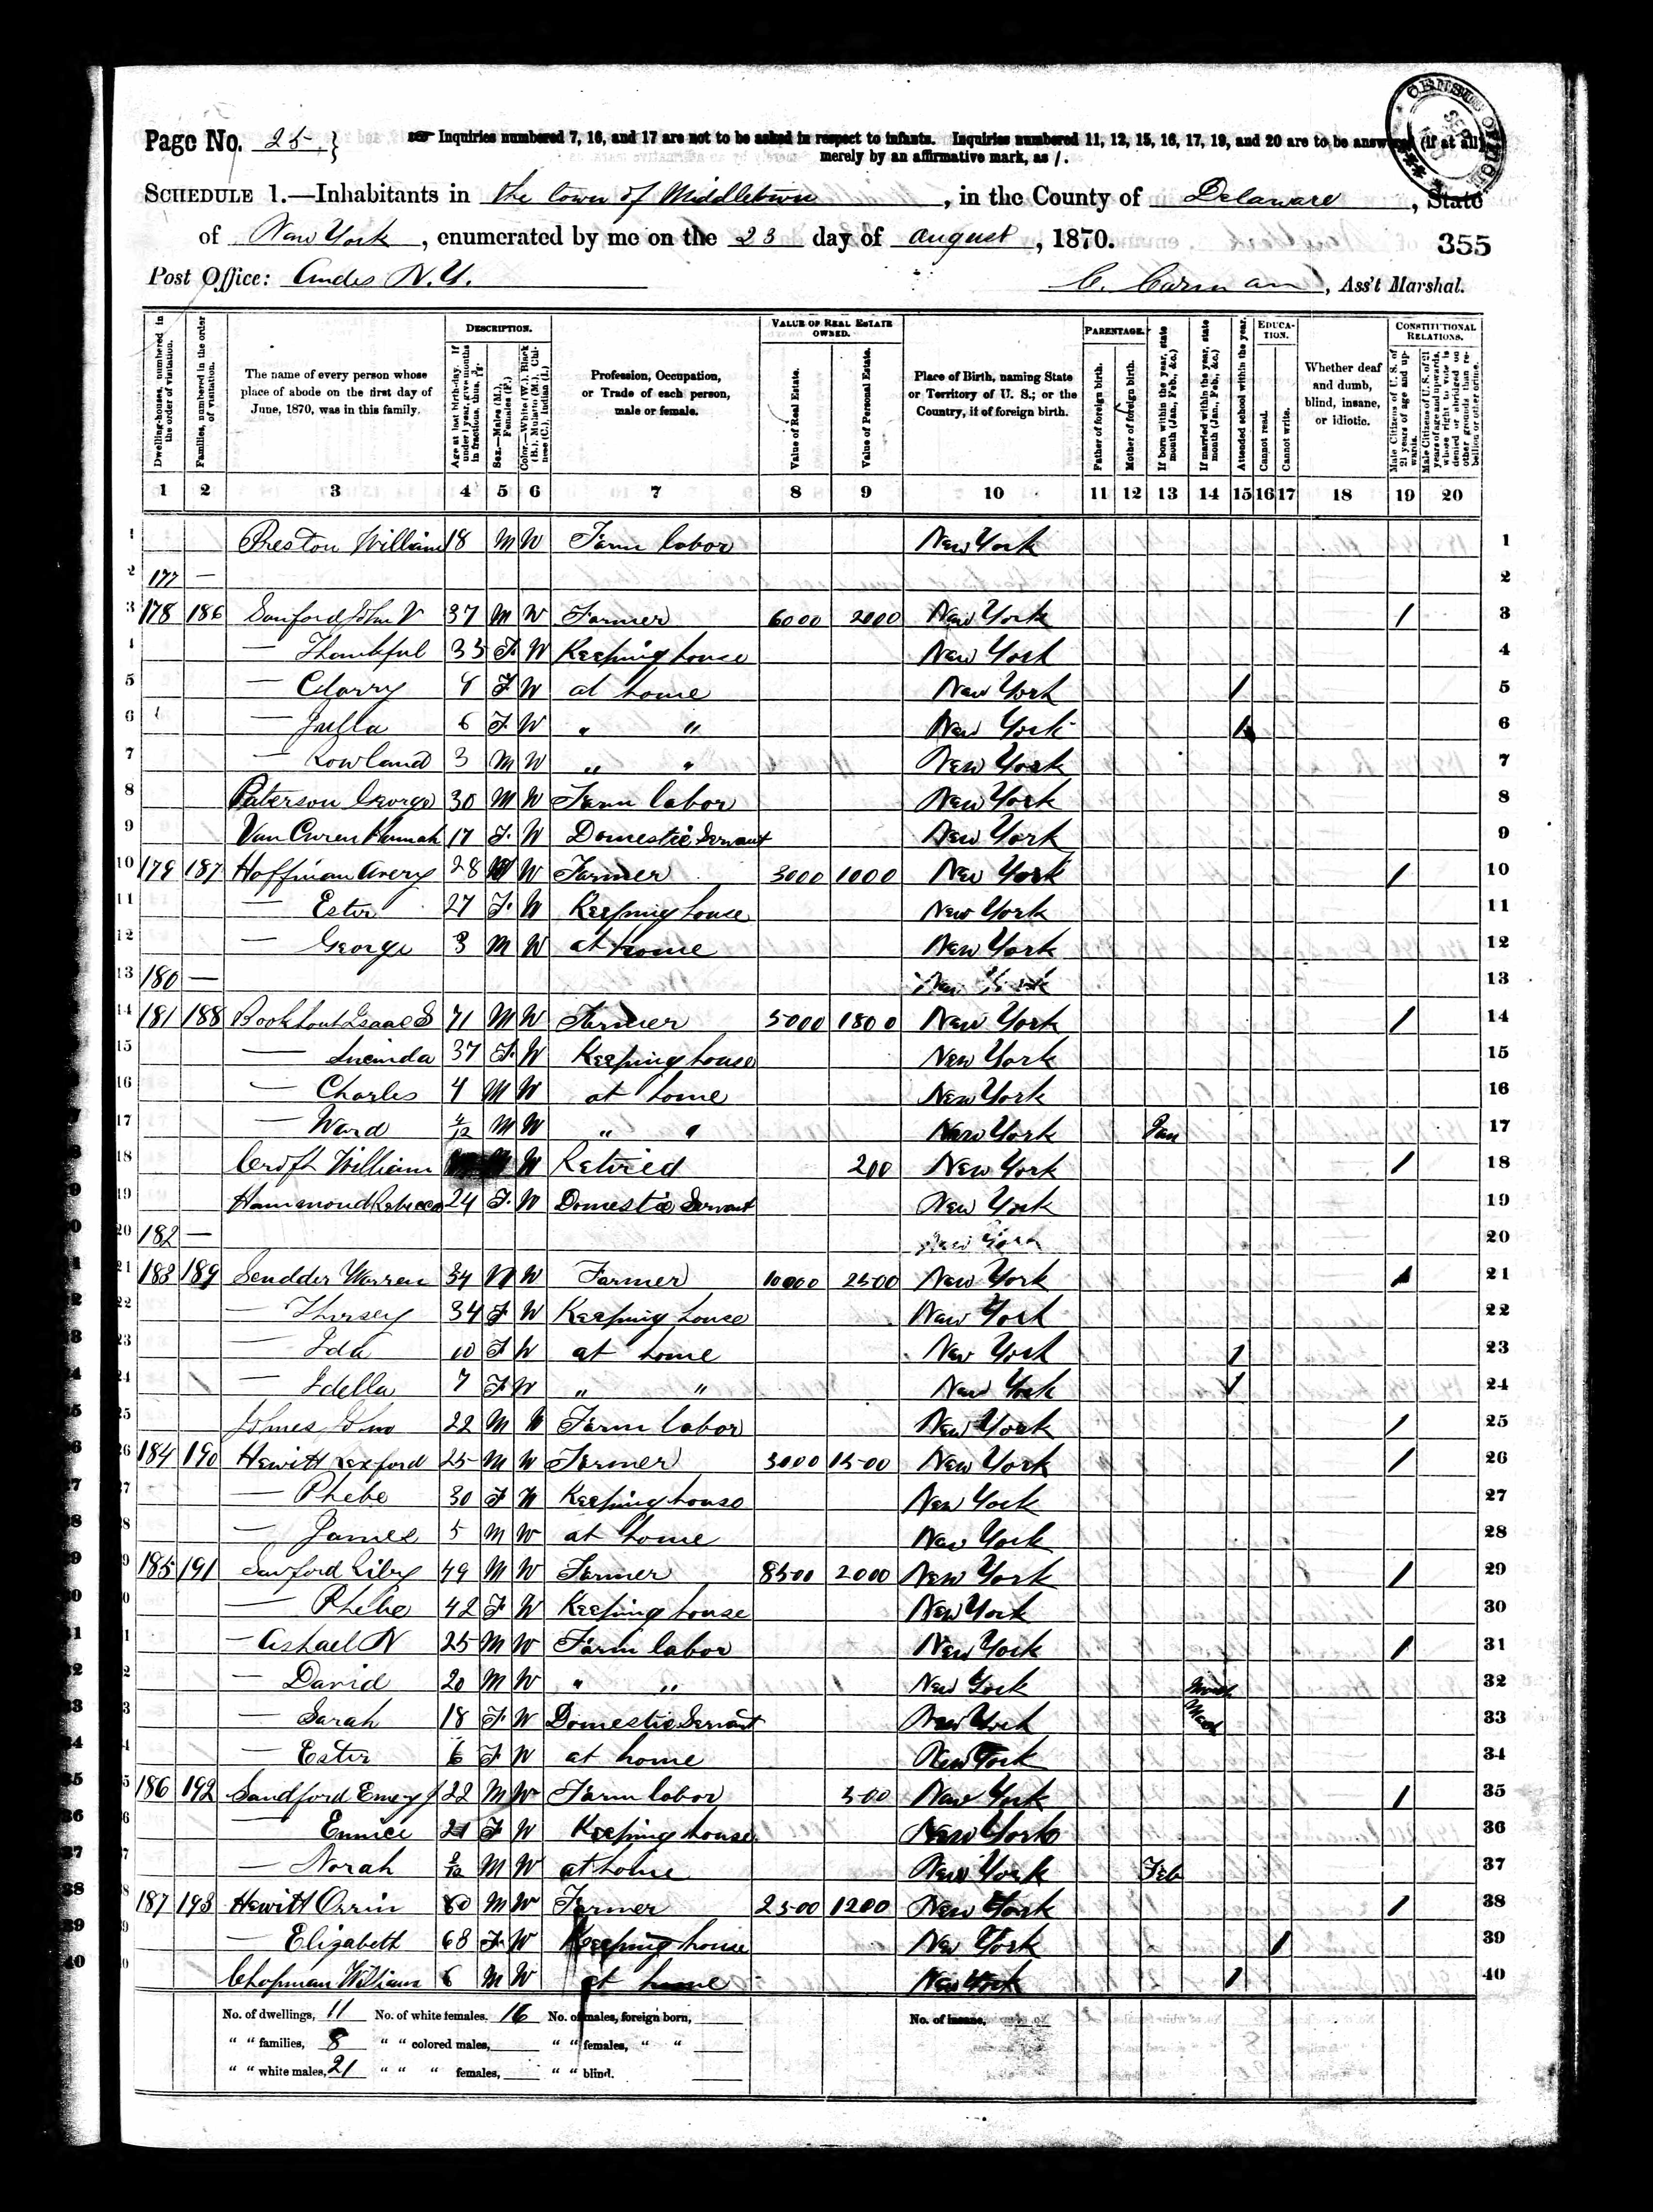 Page No. 25
Inquiries numbered 7, 16, and 17 are not to be asked in respect to infants. Inquiries numbered 11, 12, 15, 16, 17, 19, and 20 are to be answered (if at all)
merely by an affirmative mark, as /.
SCHEDULE 1.—Inhabitants in the town of Middletown, in the County of Delaware, State
of New York, enumerated by me on the 23 day of August, 1870.
355
Post Office: Andes N.Y.
C. Carman, Ass't Marshal.
Dwelling-houses, numbered in the order of visitation.
Families, numbered in the order of visitation.
The name of every person whose place of abode on the first day of June, 1870, was in this family.
DESCRIPTION.
Age at last birth-day. If under 1 year, give months in fractions, thus, 3/12.
Sex.—Males (M.), Females (F.)
Color.—White (W.), Black (B.), Mulatto (M.), Chinese (C.), Indian (I.)
Profession, Occupation, or Trade of each person, male or female.
VALUE OF REAL ESTATE OWNED.
Value of Real Estate.
Value of Personal Estate.
Place of Birth, naming State or Territory of U. S.; or the Country, if of foreign birth.
PARENTAGE.
Father of foreign birth.
Mother of foreign birth.
If born within the year, state month (Jan., Feb., &c.)
If married within the year, state month (Jan., Feb., &c.)
Attended school within the year.
EDUCATION.
Cannot read.
Cannot write.
Whether deaf and dumb, blind, insane, or idiotic.
CONSTITUTIONAL RELATIONS.
Male Citizens of U. S. of 21 years of age and upwards.
Male Citizens of U. S. of 21 years of age and upwards, whose right to vote is denied or abridged on other grounds than rebellion or other crime.
1 2 3 4 5 6 7 8 9 10 11 12 13 14 15 16 17 18 19 20
1 Preston William 18 M W Farm labor New York 1
2 177 — 2
3 178 186 Sanford John V 37 M W Farmer 6000 2000 New York / 3
4 — Thankful 33 F W Keeping house New York 4
5 — Clarry 8 F W at home New York / 5
6 — Julia 6 F W " " New York / 6
7 — Rowland 3 M W " " New York 7
8 Paterson George 30 M W Farm labor New York 8
9 Van Curen Hannah 17 F W Domestic Servant New York 9
10 179 187 Hoffman Avery 28 M W Farmer 3000 1000 New York / 10
11 — Ester 27 F W Keeping house New York 11
12 — George 3 M W at home New York 12
13 180 — New York 13
14 181 188 Bookhout Isaac S 71 M W Farmer 5000 1800 New York / 14
15 — Lucinda 37 F W Keeping house New York 15
16 — Charles 4 M W at home New York 16
17 — Ward M W " " New York Jan 17
18 Croft William M W Retired 200 New York / 18
19 Hammond Rebecca 24 F W Domestic Servant New York 19
20 182 — New York 20
21 183 189 Scudder Warren 34 M W Farmer 10000 2500 New York / 21
22 — Thirsey 34 F W Keeping house New York 22
23 — Ida 10 F W at home New York / 23
24 — Idella 7 F W " " New York / 24
25 John 22 M W Farm labor New York / 25
26 184 190 Hewitt Rexford 25 M W Farmer 3000 1500 New York / 26
27 — Phebe 30 F W Keeping house New York 27
28 — James 5 M W at home New York 28
29 185 191 Sanford Liby 49 M W Farmer 8500 2000 New York / 29
30 — Phebe 42 F W Keeping house New York 30
31 — Ashael N 25 M W Farm labor New York / 31
32 — David 20 M W " " New York 32
33 — Sarah 18 F W Domestic Servant New York 33
34 — Ester 6 F W at home New York 34
35 186 192 Sandford Emery J 22 M W Farm labor 300 New York / 35
36 — Eunice 21 F W Keeping house New York 36
37 — Norah M W at home New York Feb 37
38 187 193 Hewitt Orrin 60 M W Farmer 2500 1200 New York / 38
39 — Elizabeth 68 F W Keeping house New York / 39
40 Chopman William 6 M W at home New York / 40
No. of dwellings, 11 No. of white females, 16 No. of males, foreign born, No. of insane,
" " families, 8 " " colored males, " " females, " "
" " white males, 21 " " " females, " " blind.